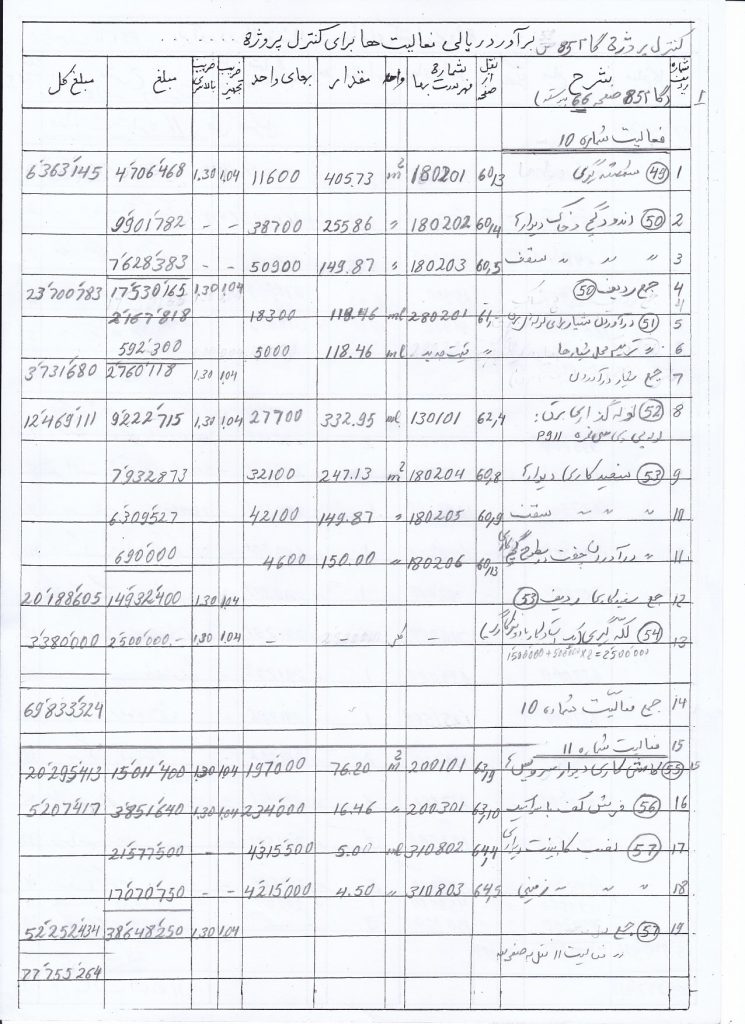 کنترل پروژه گا 852 برآورد ریالی فعالیت ها برای کنترل پروژه
شماره ردیف بشرح نقل از صفحه شماره فهرست بها واحد مقدار بهای واحد ضریب تجهیز ضریب بالاسری مبلغ مبلغ کل
(گا 852 صفحه 66 پیوسته) 1
فعالیت شماره 10
1 (49) شمشه گیری 60/3 180201 m² 405.73 11600 1.04 1.30 4'706'468 6'363'145
2 (50) اندود گچ و خاک دیوارها 60/4 180202 〃 255.86 38700 - - 9'901'782
3 〃 〃 〃 سقف 60,5 180203 〃 149.87 50900 - - 7'628'383
4 جمع ردیف (50) 1.04 1.30 17'530'165 23'700'783
5 (51) درآوردن شیار برای لوله 61,- 280201 ml 118.46 18300 2'167'818
6 〃 ترمیم محل شیارها 〃 قیمت جدید ml 118.46 5000 592'300
7 جمع شیار درآوردن 1.04 1.30 2'760'118 3'731'680
8 (52) لوله گذاری برق: 62,4 130101 ml 332.95 27700 1.04 1.30 9'222'715 12'469'111
P911
9 (53) سفید کاری دیوارها 60,8 180204 m² 247.13 32100 7'932'873
10 〃 〃 〃 سقف 60,9 180205 〃 149.87 42100 6'309'527
11 〃 درآوردن چفت در سطوح گچ کاری 60/13 180206 〃 150.00 4600 690'000
12 جمع سفیدکاری ردیف (53) 1.04 1.30 14'932'400 20'188'605
13 (54) لکه گیری - - 1.04 1.30 2'500'000.- 3'380'000
1'500'000+500'000×2=2'500'000
14 جمع فعالیت شماره 10 69'833'324
15 فعالیت شماره 11
15 (55) کاشی کاری دیوار سرویس ها 63/9 200101 m² 76.20 197'000 1.04 1.30 15'011'400 20'295'413
16 (56) فرش کف با سرامیک 63/10 200301 〃 16.46 234000 1.04 1.30 3'851'640 5'207'417
17 (57) نصب کابینت دیواری 64,4 310802 ml 5.00 4'315'500 - - 21'577'500
18 〃 〃 〃 زمینی 64,5 310803 〃 4.50 4'215'000 - - 17'070'750
19 (57) جمع 1.04 1.30 38'648'250 52'252'434
〃 فعالیت 11 نقل به صفحه بعد 77'755'264